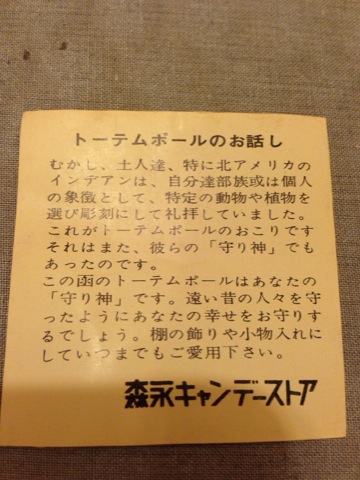 トーテムポールのお話し
むかし、土人達、特に北アメリカの
インデアンは、自分達部族或は個人
の象徴として、特定の動物や植物を
選び彫刻にして礼拝していました。
これがトーテムポールのおこりです
それはまた、彼らの「守り神」でも
あったのです。
この函のトーテムポールはあなたの
「守り神」です。遠い昔の人々を守
ったようにあなたの幸せをお守りす
るでしょう。棚の飾りや小物入れに
していつまでもご愛用下さい。
森永キャンデーストア